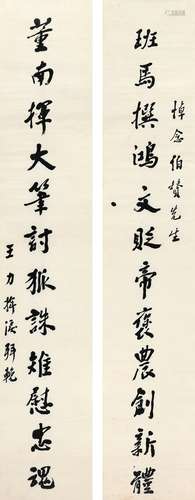 悼念伯贊先生
班馬撰鴻文貶帝褒農創新體
董南揮大筆討狐誅雉慰忠魂
王力揮淚拜輓